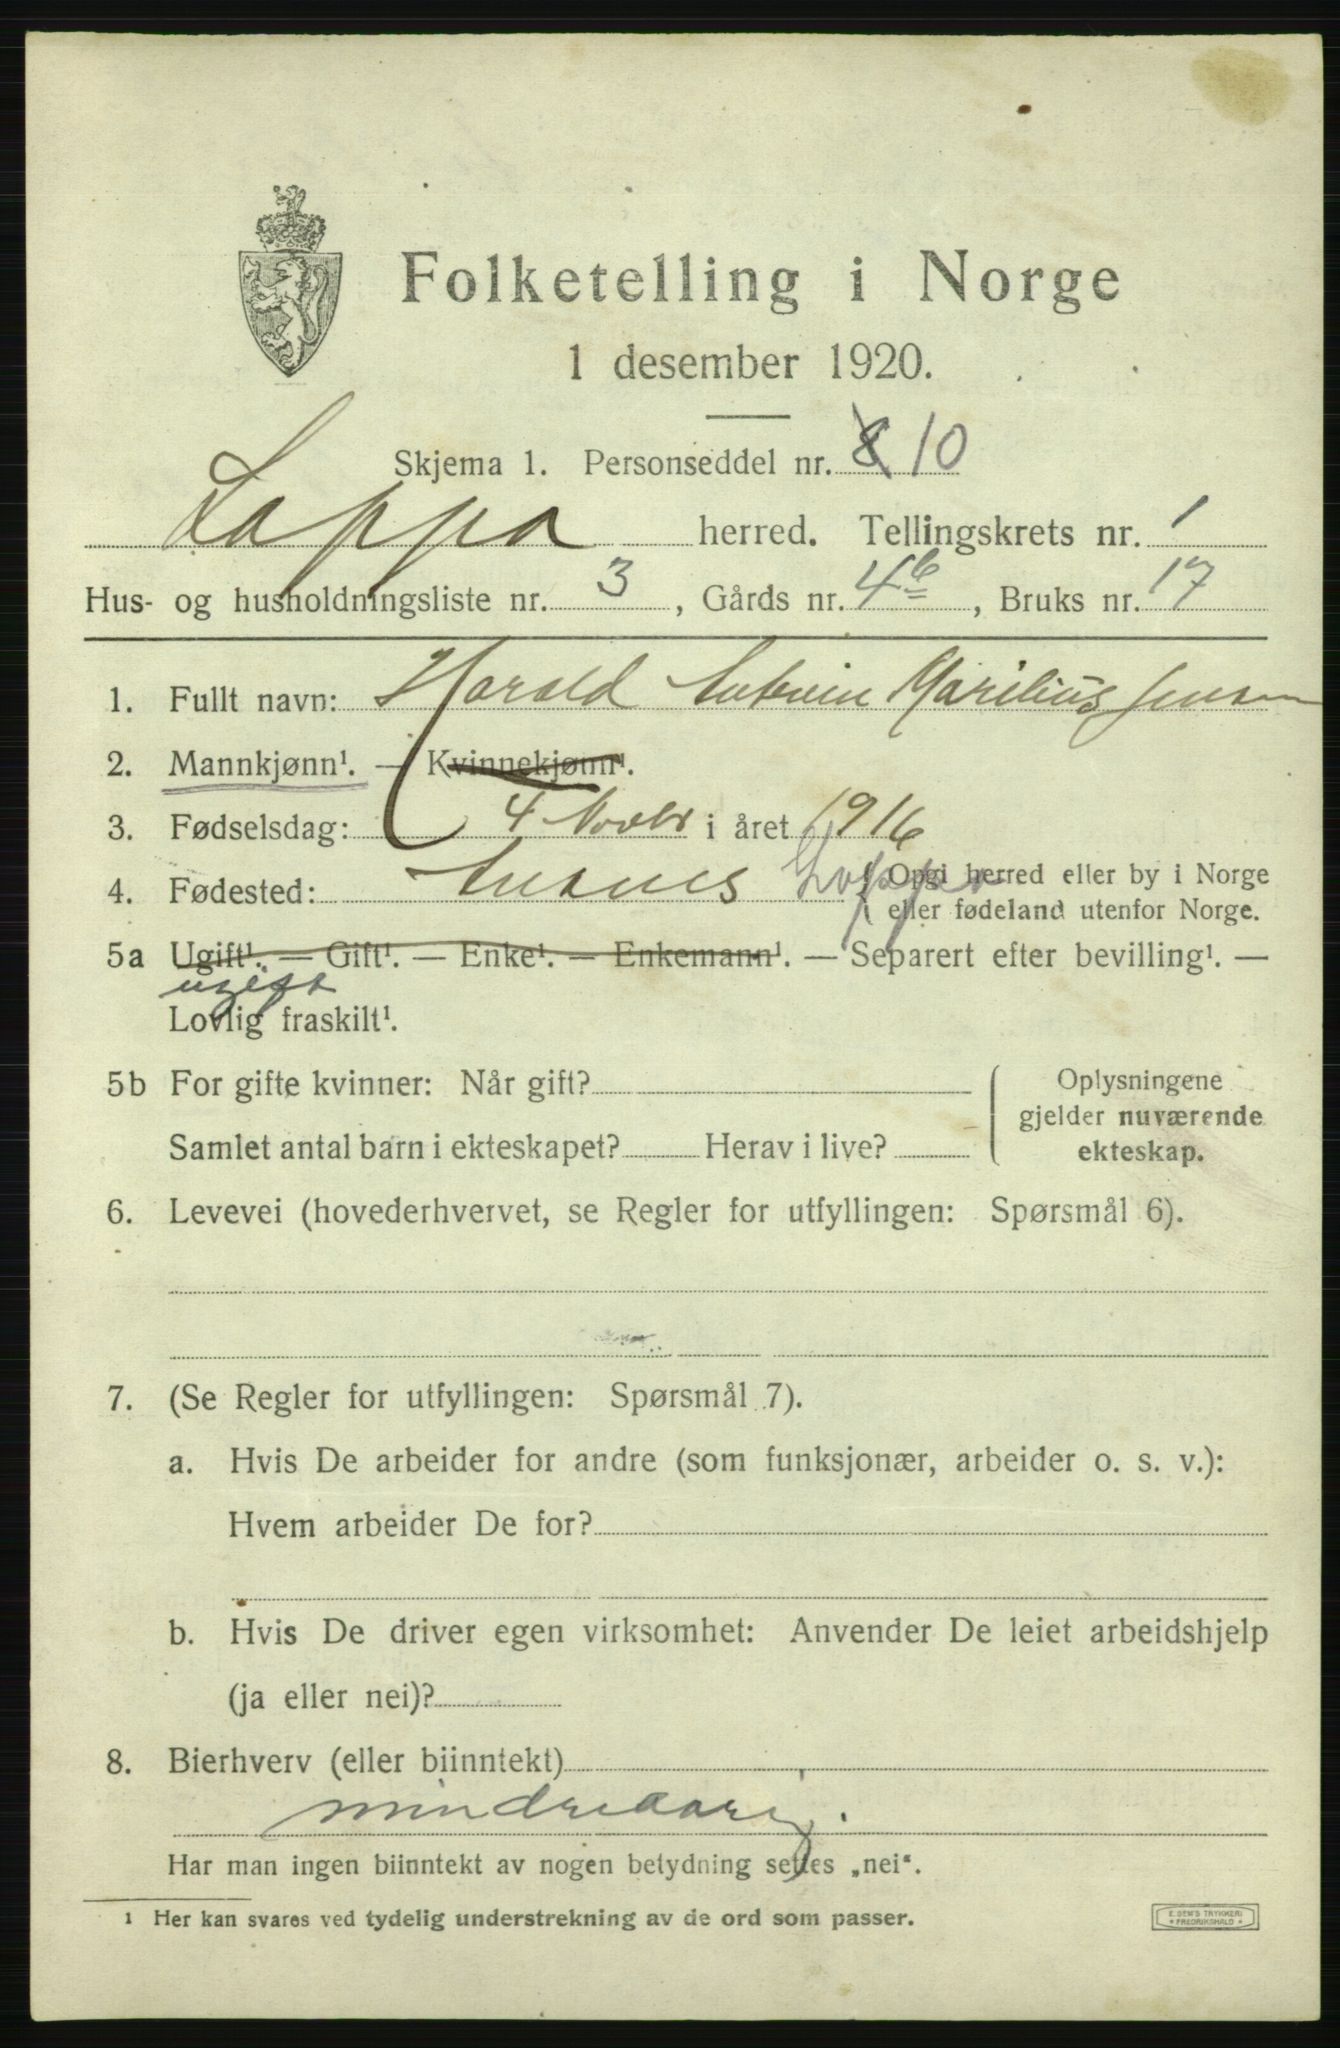 Folketelling i Norge
1 desember 1920.
Skjema 1. Personseddel nr. 8 10
Loppa herred. Tellingskrets nr. 1
Hus- og husholdningsliste nr. 3, Gårds nr. 4b, Bruks nr. 17
1. Fullt navn: Harald Marilius Jensen
2. Mannkjønn¹. — Kvinnekjønn¹.
3. Fødselsdag: 4 Novbr i året 1916
4. Fødested: Loppa Opgi herred eller by i Norge
eller fødeland utenfor Norge.
5a Ugift¹. — Gift¹. — Enke¹. — Enkemann¹. — Separert efter bevilling¹. —
ugift
Lovlig fraskilt¹.
5b For gifte kvinner: Når gift? Oplysningene
gjelder nuværende
Samlet antal barn i ekteskapet? Herav i live? ekteskap.
6. Levevei (hovederhvervet, se Regler for utfyllingen: Spørsmål 6).
7. (Se Regler for utfyllingen: Spørsmål 7).
a. Hvis De arbeider for andre (som funksjonær, arbeider o. s. v.):
Hvem arbeider De for?
b. Hvis De driver egen virksomhet: Anvender De leiet arbeidshjelp
(ja eller nei)?
8. Bierhverv (eller biinntekt)
mindreaarig.
Har man ingen biinntekt av nogen betydning settes „nei“.
¹ Her kan svares ved tydelig understrekning av de ord som passer.
E. SEM'S TRYKKERI
FREDRIKSHALD